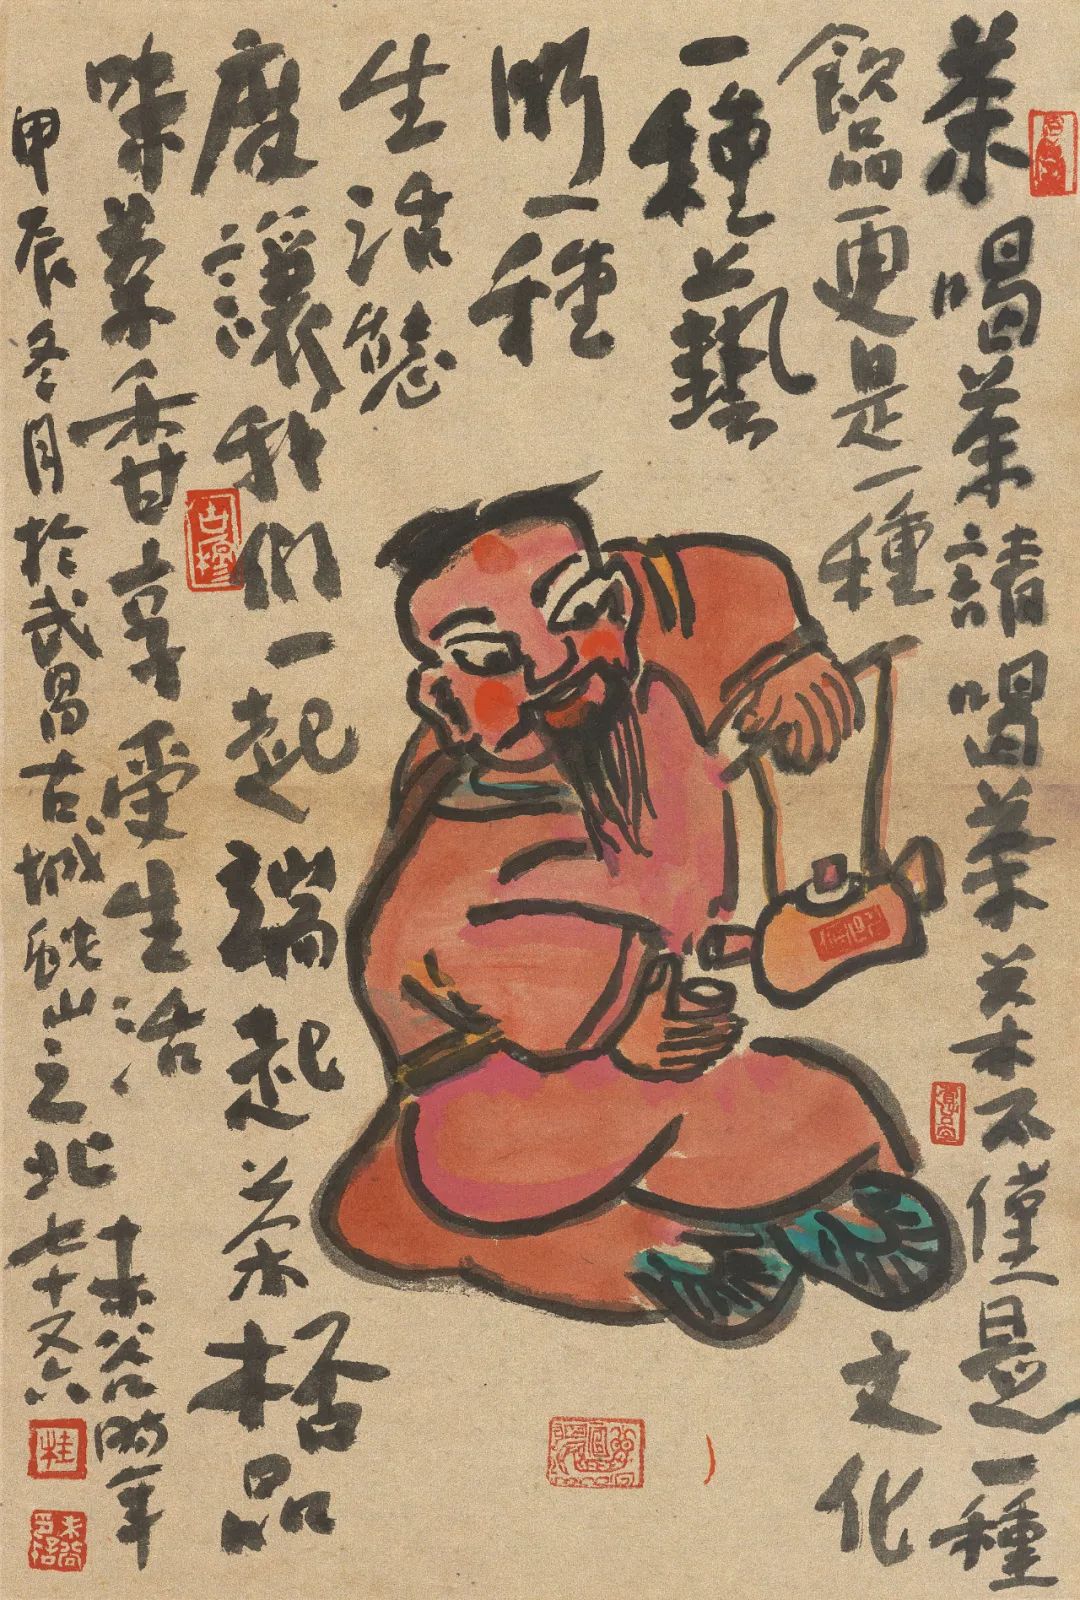 茶喝茶請喝茶茶不僅是一種
飲品更是一種文化
一種藝
術一種
生活態
度讓我們一起端起茶杯品
味茶香甘享受生活
甲辰冬月於武昌古城蛇山之北
未谷時年
七十又六